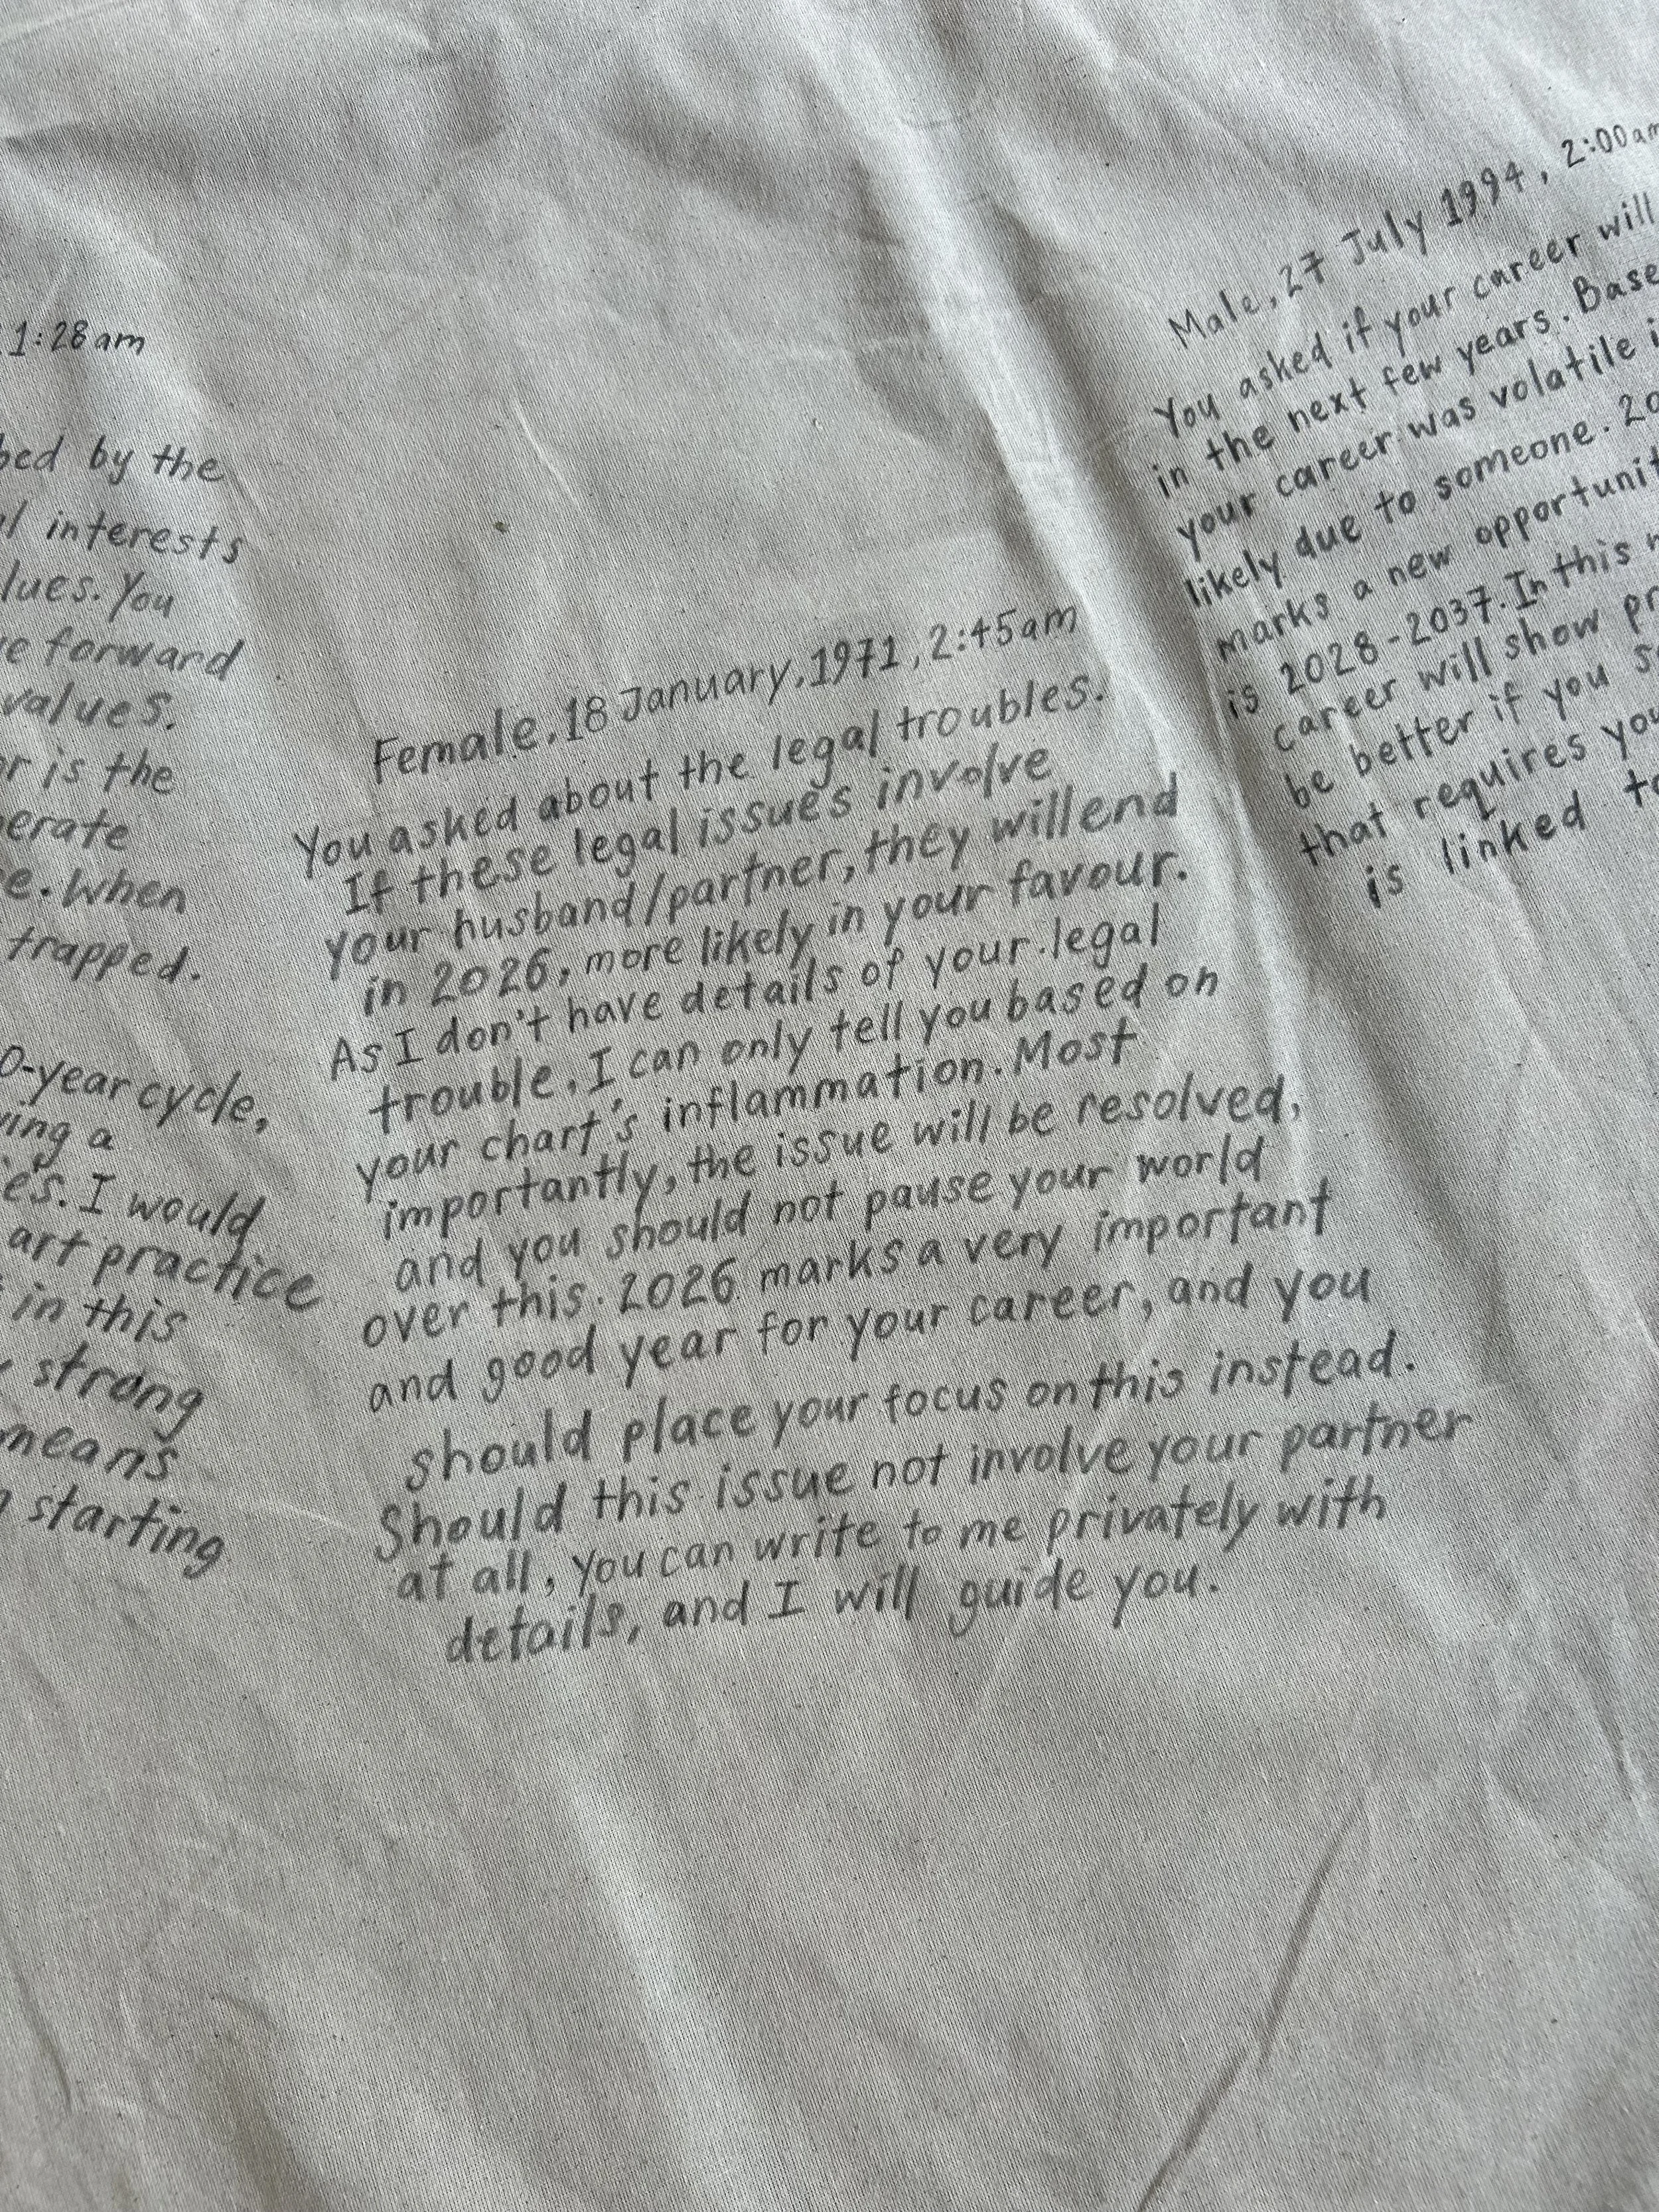 1:28am
by the
interests
You
forward
values.
is the
When
trapped.
0-year cycle,
a
I would
art practice
in this
strong
means
starting
Female, 18 January, 1971, 2:45am
You asked about the legal troubles.
If these legal issues involve
your husband/partner, they will end
in 2026, more likely in your favour.
As I don't have details of your legal
trouble, I can only tell you based on
your chart's inflammation. Most
importantly, the issue will be resolved,
and you should not pause your world
over this. 2026 marks a very important
and good year for your career, and you
should place your focus on this instead.
Should this issue not involve your partner
at all, you can write to me privately with
details, and I will guide you.
Male, 27 July 1994, 2:00am
You asked if your career will
in the next few years. Base
your career was volatile
likely due to someone. 20
marks a new opportunit
is 2028-2037. In this
career will show pr
be better if you
that requires you
is linked to